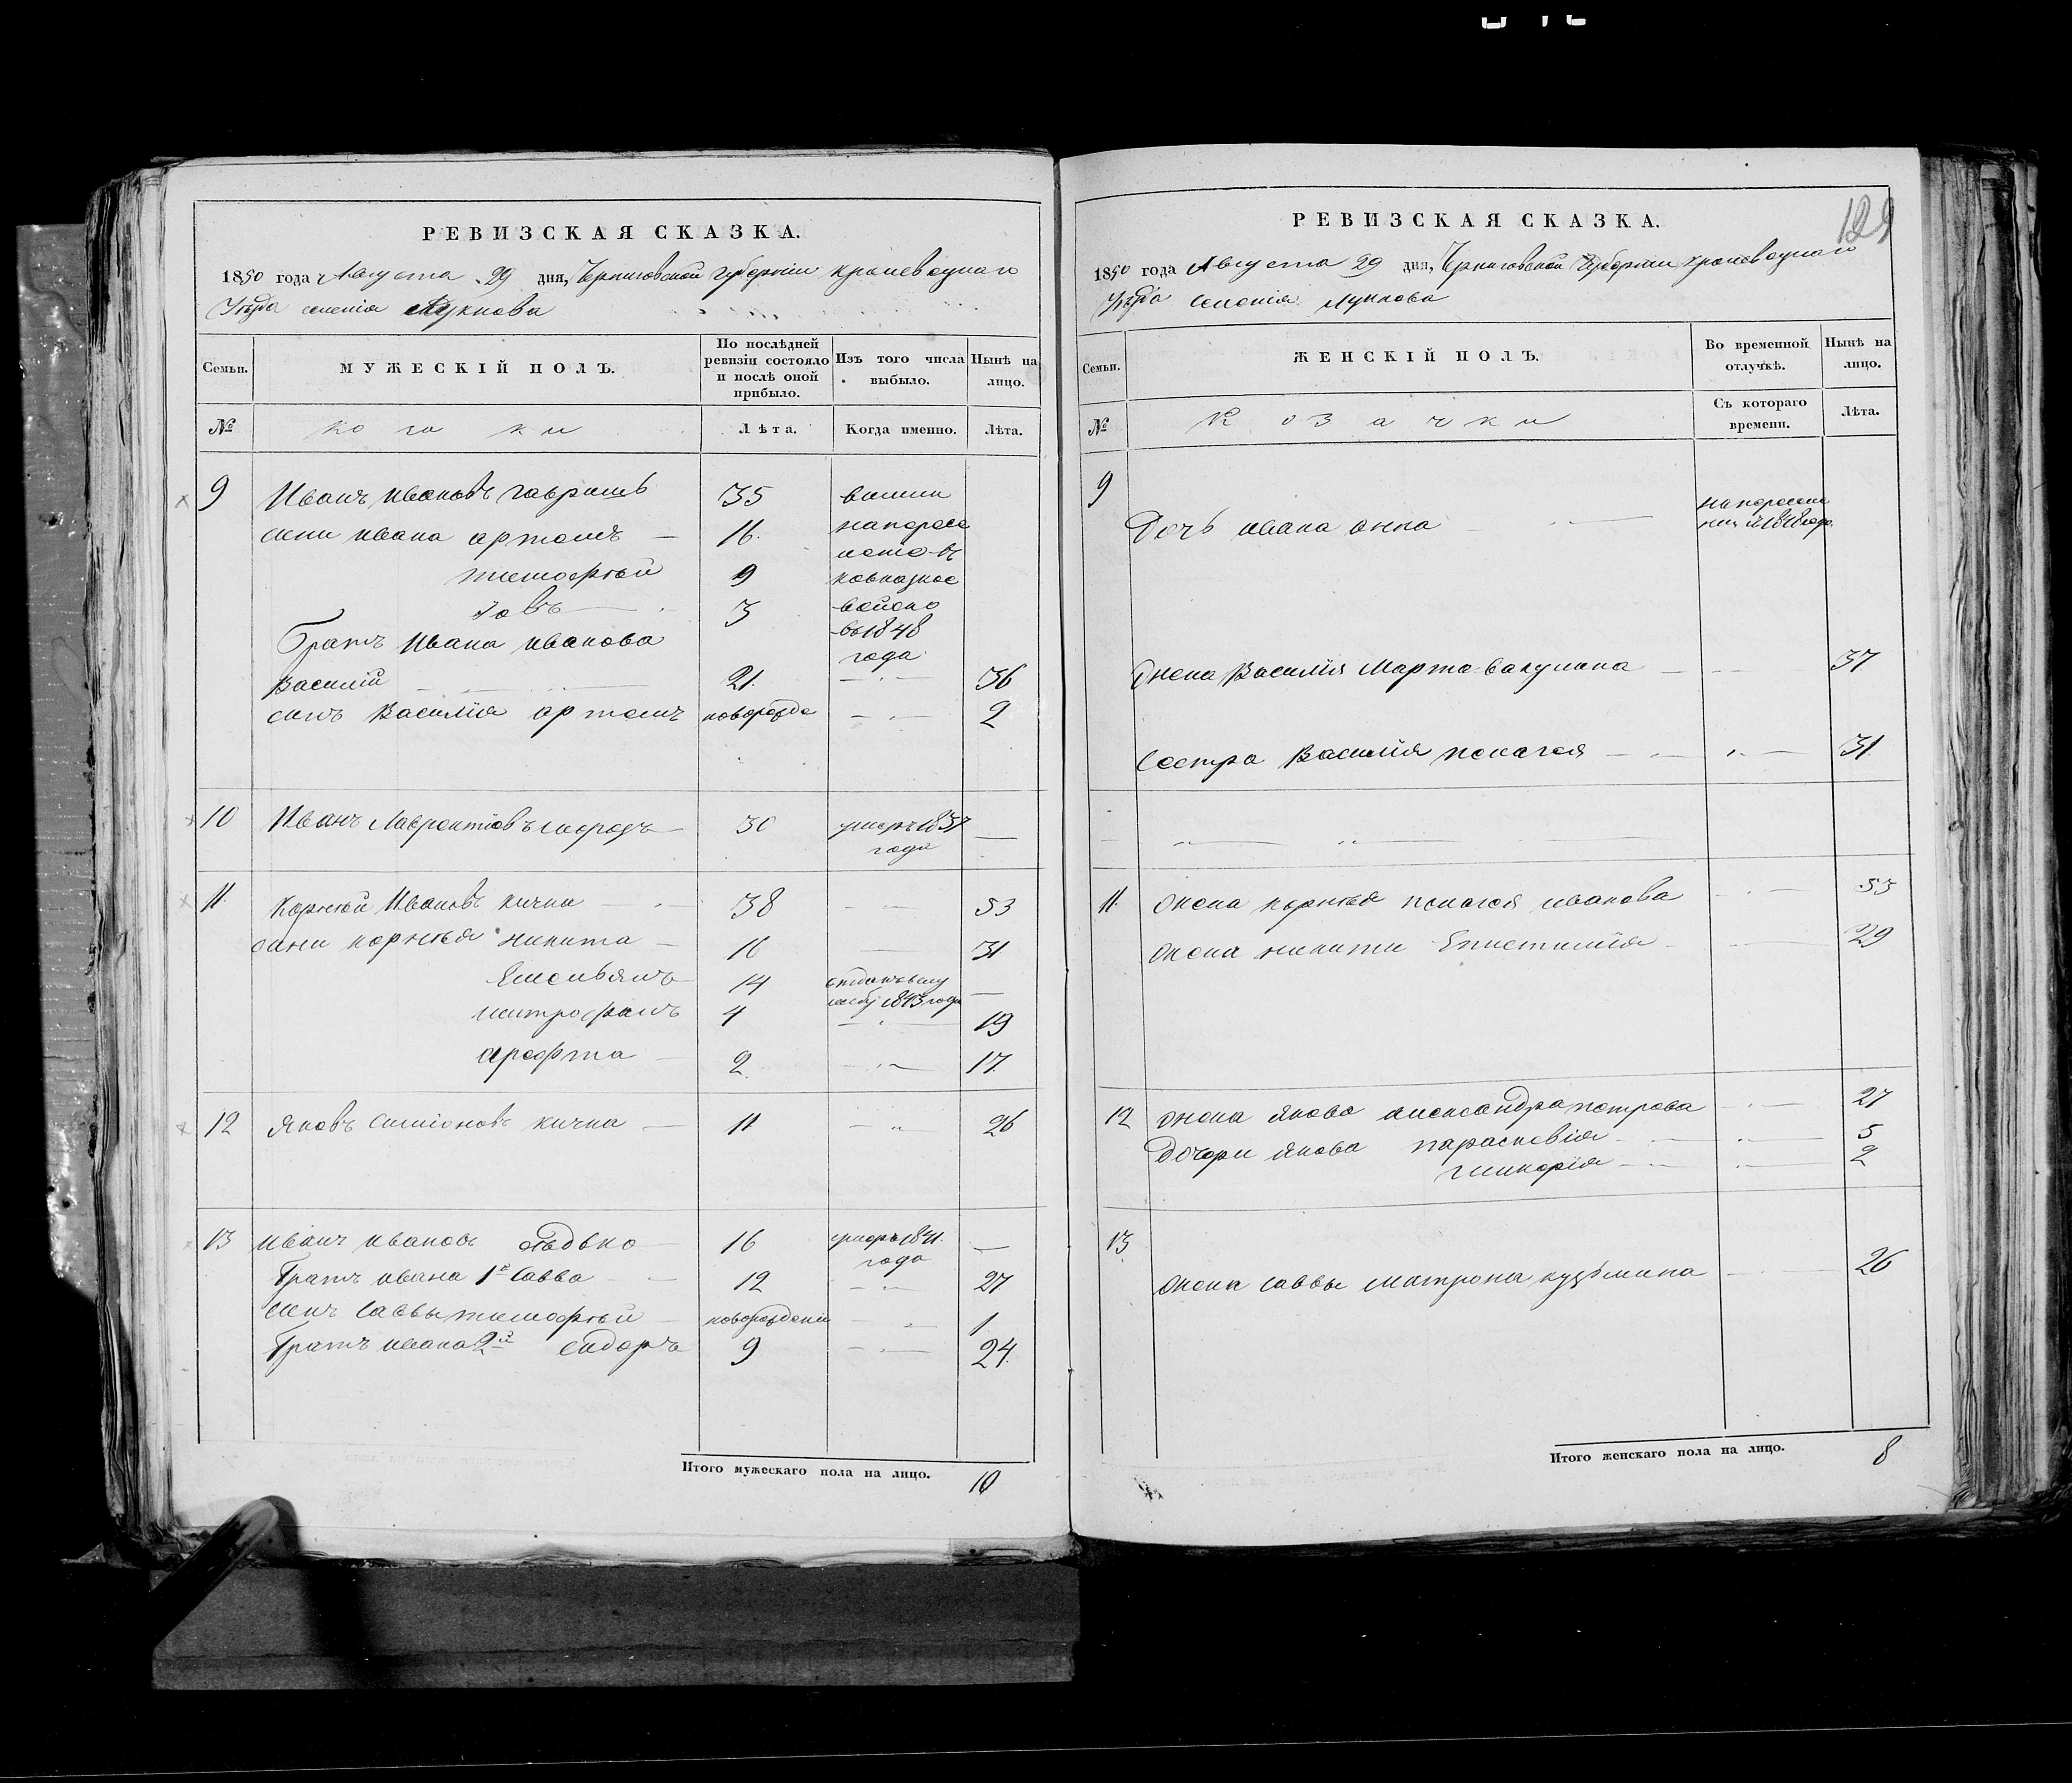 РЕВИЗСКАЯ СКАЗКА.
1850 года Августа 29 дня, Черниговской губерніи кролевецкаго
Уѣзда селенія Лукнова
Семьи. МУЖЕСКІЙ ПОЛЪ. По послѣдней ревизіи состояло и послѣ оной прибыло. Изъ того числа выбыло. Нынѣ на лицо.
№ козаки Лѣта. Когда именно. Лѣта.
9 Иванъ ивановъ гавришъ 35
сини ивана артемъ 16.
тимофѣй 9 кавказкое
іовъ 3 войско
Братъ ивана иванова въ 1848
года
Василій 21. 36
синъ Василія артемъ новорожде 2
10 Иванъ Лаврентіовъ 30 умеръ 1837
года
11. Корнѣй Ивановъ кичка 38 53
сини корнѣя никита 16 31.
Емельянъ 14
1843 года
митрофанъ 4 19
арефта 2. 17.
12 Яковъ симіоновъ кичка 11 26
13 иванъ ивановъ дѣдько 16 умеръ 1841.
года
Братъ ивана 1й Савва 12 27
синъ саввы тимофѣй новорожденій 1
Братъ ивана 2й сидоръ 9 24.
Итого мужескаго пола на лицо. 10
129
РЕВИЗСКАЯ СКАЗКА.
1850 года Августа 29 дня, Черниговской Губерніи кролевецкаго
Уѣзда селенія Лукнова
Семьи. ЖЕНСКІЙ ПОЛЪ. Во временной отлучкѣ. Нынѣ на лицо.
№ Козачки Съ котораго времени. Лѣта.
9
на переселе
Дочь ивана анна нии 1848 года.
Жена Василія Марта вакулина 37
Сестра Василія пелагея 31.
11. жена корнѣя пелагея иванова 53
жена никити Епистимія 29
12 жена якова александра петрова 27
Дочери якова парасковія 5
гликерія 2
13
жена саввы матрона кузьмина 26
Итого женскаго пола на лицо. 8